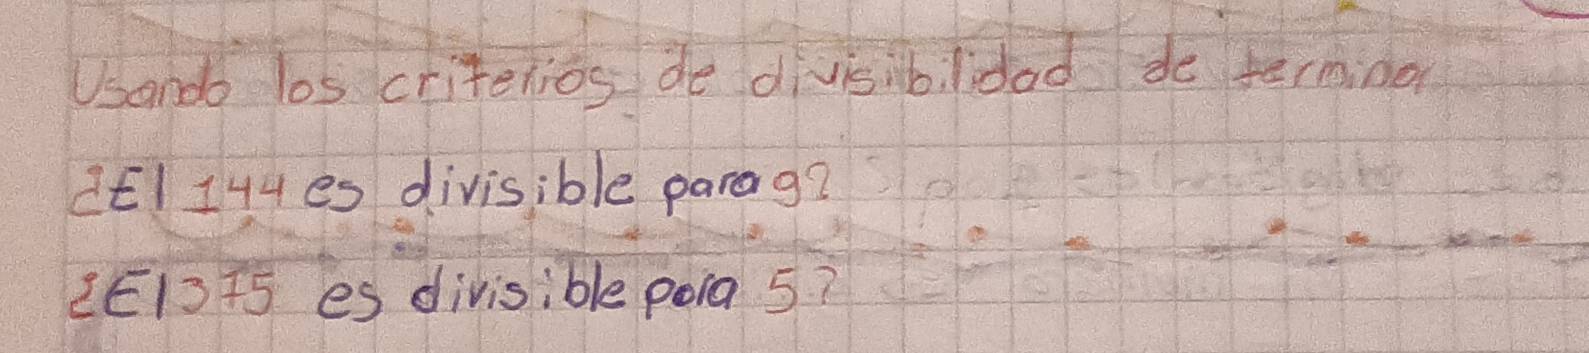 Usando los criterios de divisibilidad de terminar
¿El 144 es divisible para 9?
¿El 375 es divisible para 5?